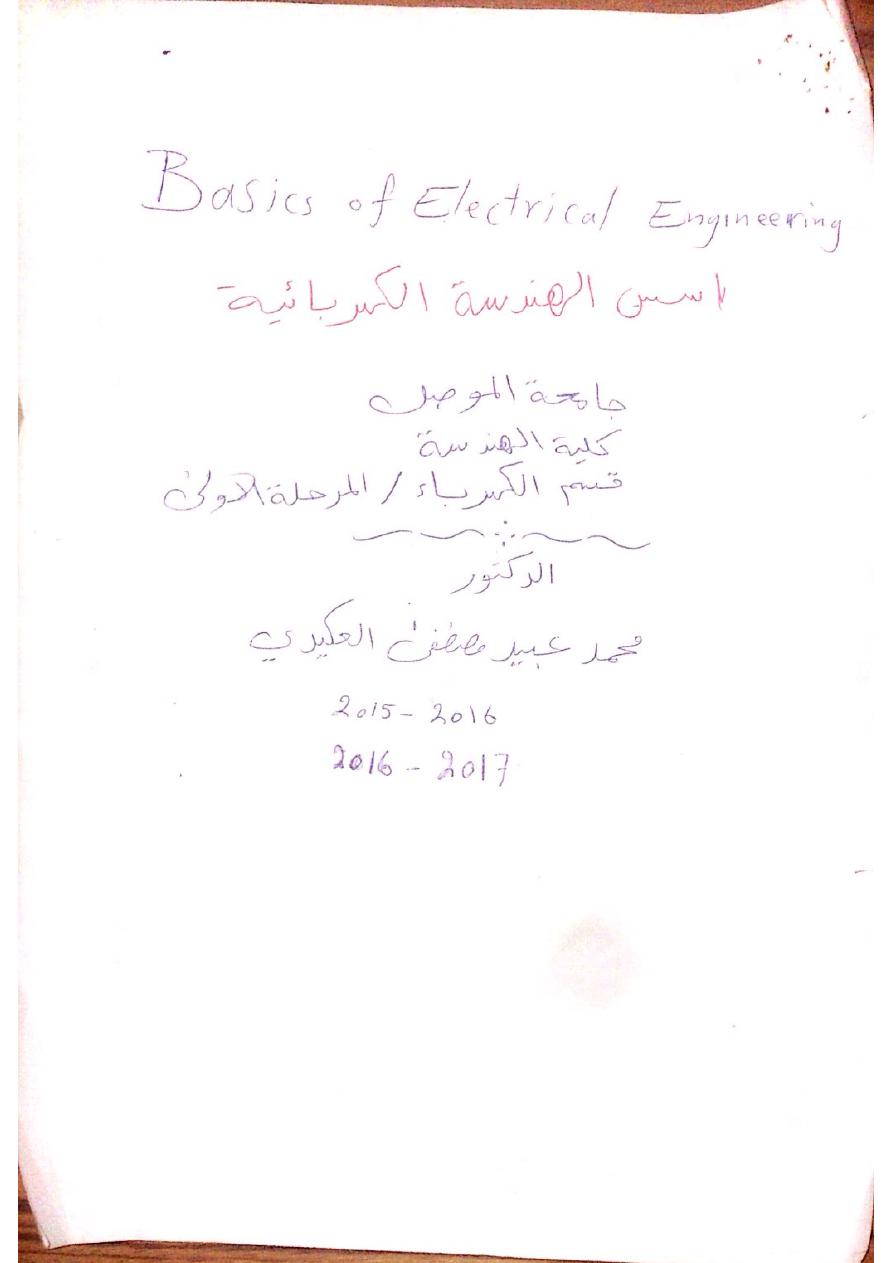 Basics of Electrical Engineering
اسس الهندسة الكهربائية
جامعة الموصل
كلية الهندسة
قسم الكهرباء / المرحلة الاولى
الدكتور
محمد عبيد مصطفى العكيدي
2015 - 2016
2016 - 2017